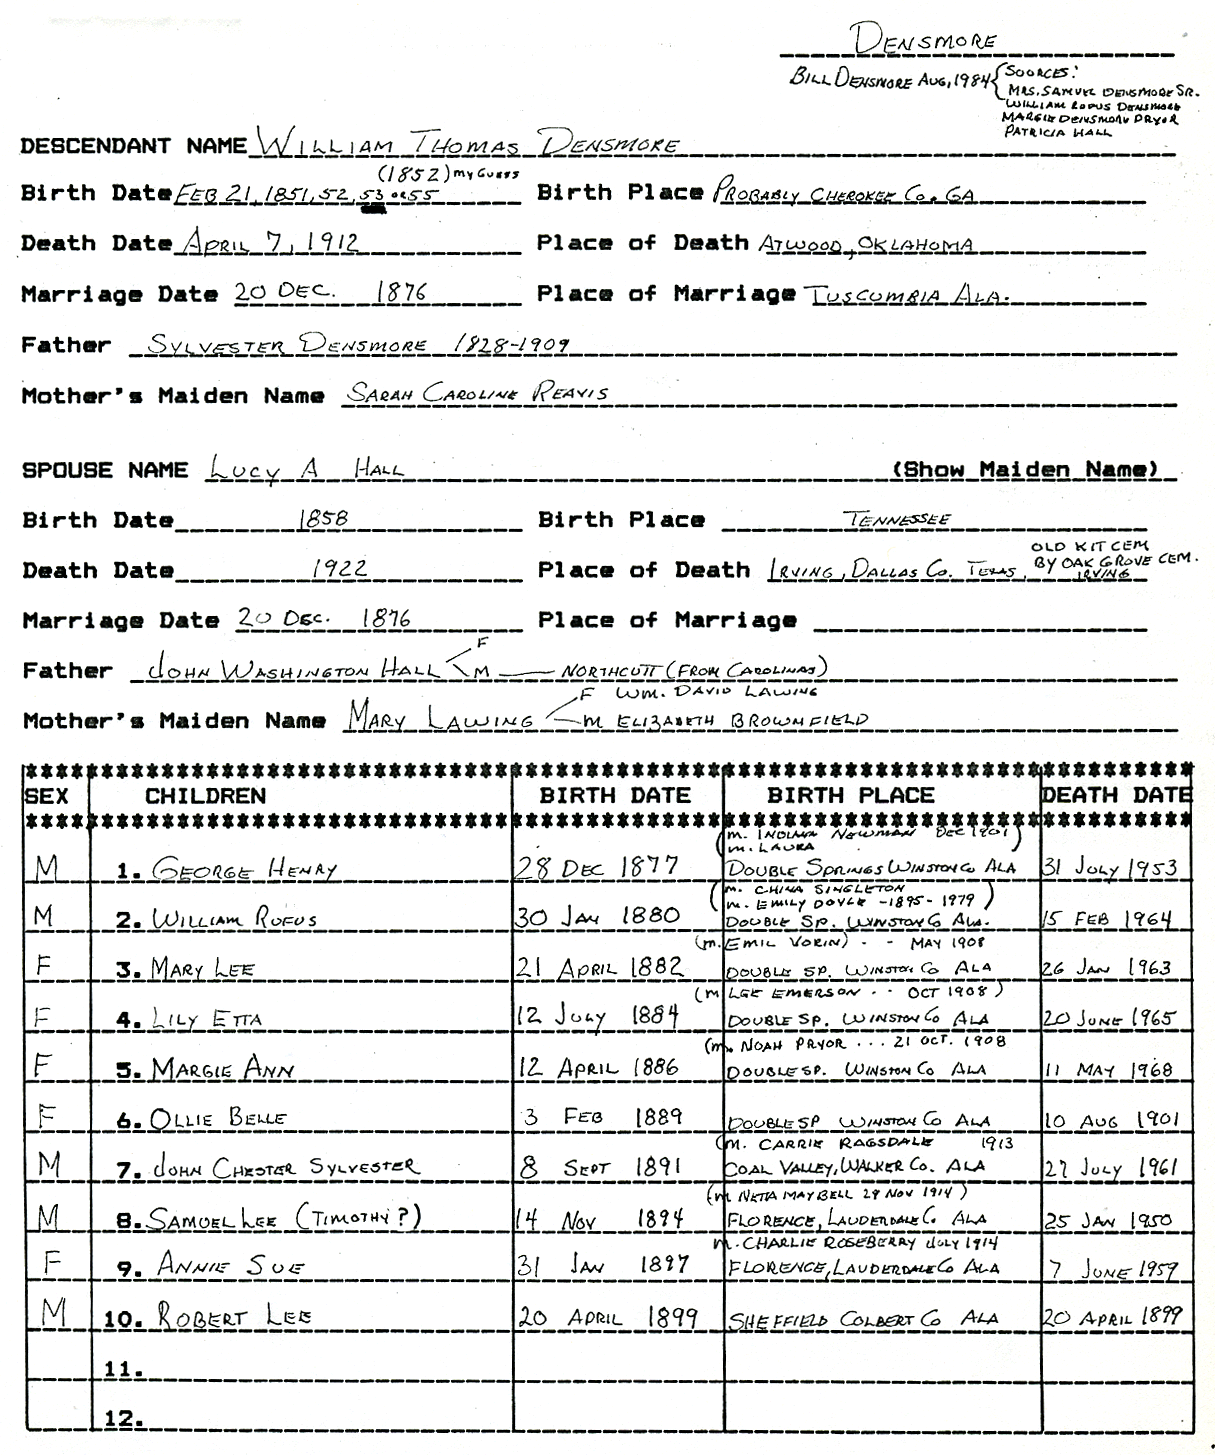 DENSMORE
BILL DENSMORE AUG, 1984 { SOURCES:
MRS. SAMUEL DENSMORE SR.
WILLIAM RUFUS DENSMORE
MARGIE DENSMORE PRYOR
PATRICIA HALL
DESCENDANT NAME WILLIAM THOMAS DENSMORE
(1852) MY GUESS
Birth Date FEB 21, 1851, 52, 53 OR 55 Birth Place PROBABLY CHEROKEE CO. GA
Death Date APRIL 7, 1912 Place of Death ATWOOD, OKLAHOMA
Marriage Date 20 DEC. 1876 Place of Marriage TUSCUMBIA ALA.
Father SYLVESTER DENSMORE 1828-1909
Mother's Maiden Name SARAH CAROLINE REAVIS
SPOUSE NAME LUCY A HALL (Show Maiden Name)
Birth Date 1858 Birth Place TENNESSEE
OLD KIT CEM
Death Date 1922 Place of Death IRVING, DALLAS CO. TEXAS, BY OAK GROVE CEM.
IRVING
Marriage Date 20 DEC. 1876 Place of Marriage
F
Father JOHN WASHINGTON HALL M — NORTHCUTT (FROM CAROLINAS)
F WM. DAVID LAWING
Mother's Maiden Name MARY LAWING M ELIZABETH BROWNFIELD
SEX CHILDREN BIRTH DATE BIRTH PLACE DEATH DATE
(M. INDIANA NEWMAN DEC 1901)
M. LAURA
M 1. GEORGE HENRY 28 DEC 1877 DOUBLE SPRINGS WINSTON CO ALA 31 JULY 1953
(M. CHINA SINGLETON
M. EMILY DOYLE -1895-1979)
M 2. WILLIAM RUFUS 30 JAN 1880 DOUBLE SP. WINSTON CO ALA. 15 FEB 1964
(M. EMIL VORIN) - - MAY 1908
F 3. MARY LEE 21 APRIL 1882 DOUBLE SP. WINSTON CO ALA 26 JAN 1963
(M LEE EMERSON . . OCT 1908)
F 4. LILY ETTA 12 JULY 1884 DOUBLE SP. WINSTON CO ALA 20 JUNE 1965
(M. NOAH PRYOR . . . 21 OCT. 1908
F 5. MARGIE ANN 12 APRIL 1886 DOUBLE SP. WINSTON CO ALA 11 MAY 1968
F 6. OLLIE BELLE 3 FEB 1889 DOUBLE SP WINSTON CO ALA 10 AUG 1901
(M. CARRIE RAGSDALE 1913
M 7. JOHN CHESTER SYLVESTER 8 SEPT 1891 COAL VALLEY, WALKER CO. ALA 27 JULY 1961
(M NETTA MAY BELL 29 NOV 1914)
M 8. SAMUEL LEE (TIMOTHY?) 14 NOV 1894 FLORENCE, LAUDERDALE CO ALA 25 JAN 1950
M. CHARLIE ROSEBERRY JULY 1914
F 9. ANNIE SUE 31 JAN 1897 FLORENCE, LAUDERDALE CO ALA 7 JUNE 1959
M 10. ROBERT LEE 20 APRIL 1899 SHEFFIELD COLBERT CO ALA 20 APRIL 1899
11.
12.